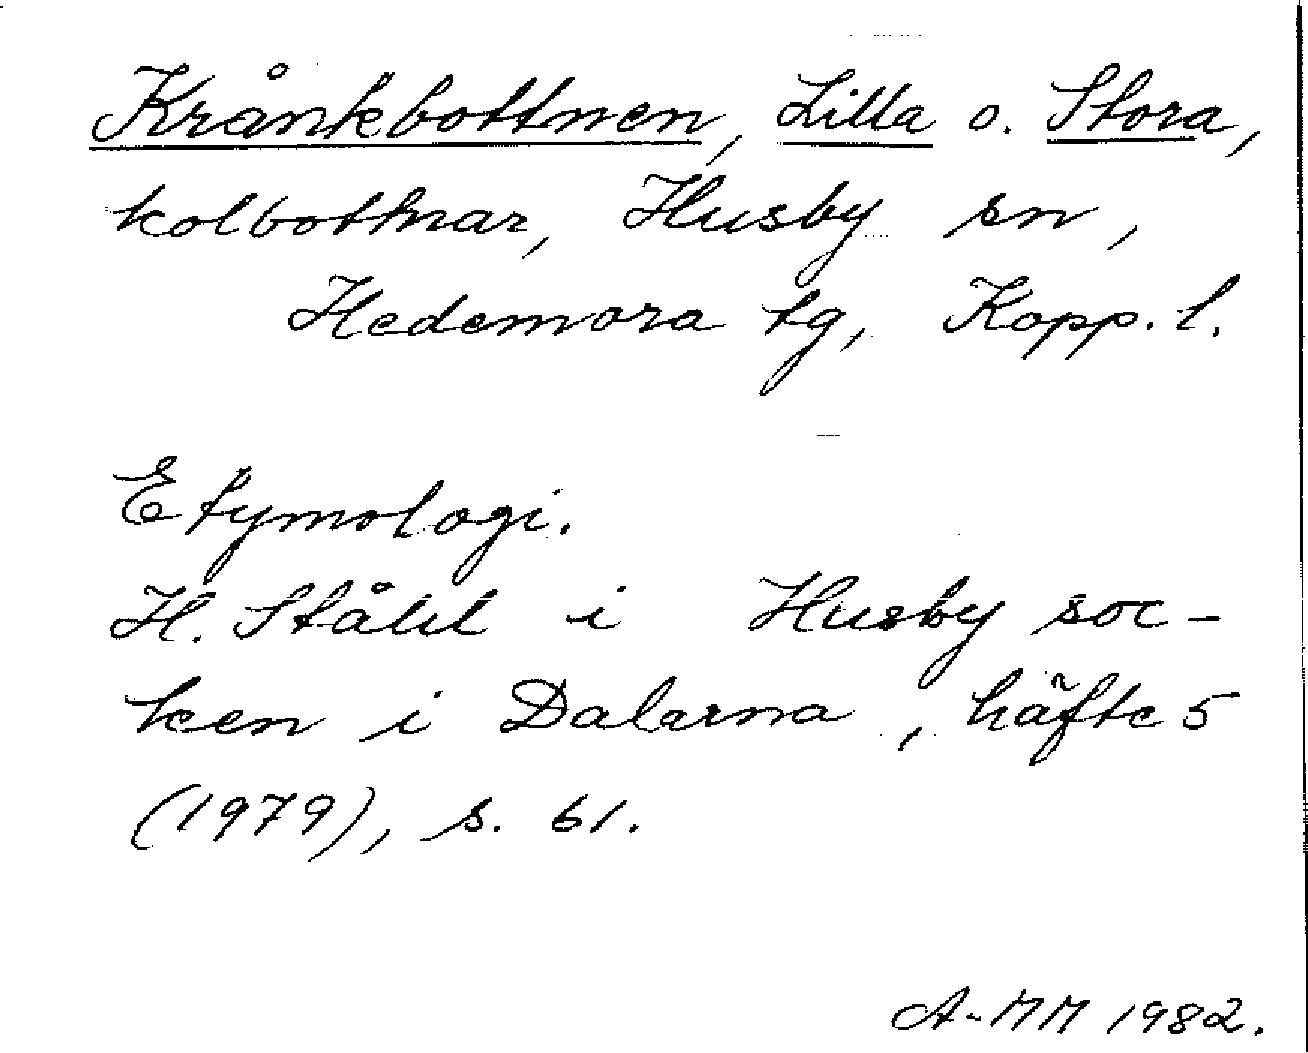 Krånkbottnen, Lilla o. Stora,
kolbottnar, Husby sn,
Hedemora tg, Kopp. l.
Etymologi.
H. Ståhl i Husby soc-
ken i Dalarna, häfte 5
(1979), s. 61.
A-MM 1982.